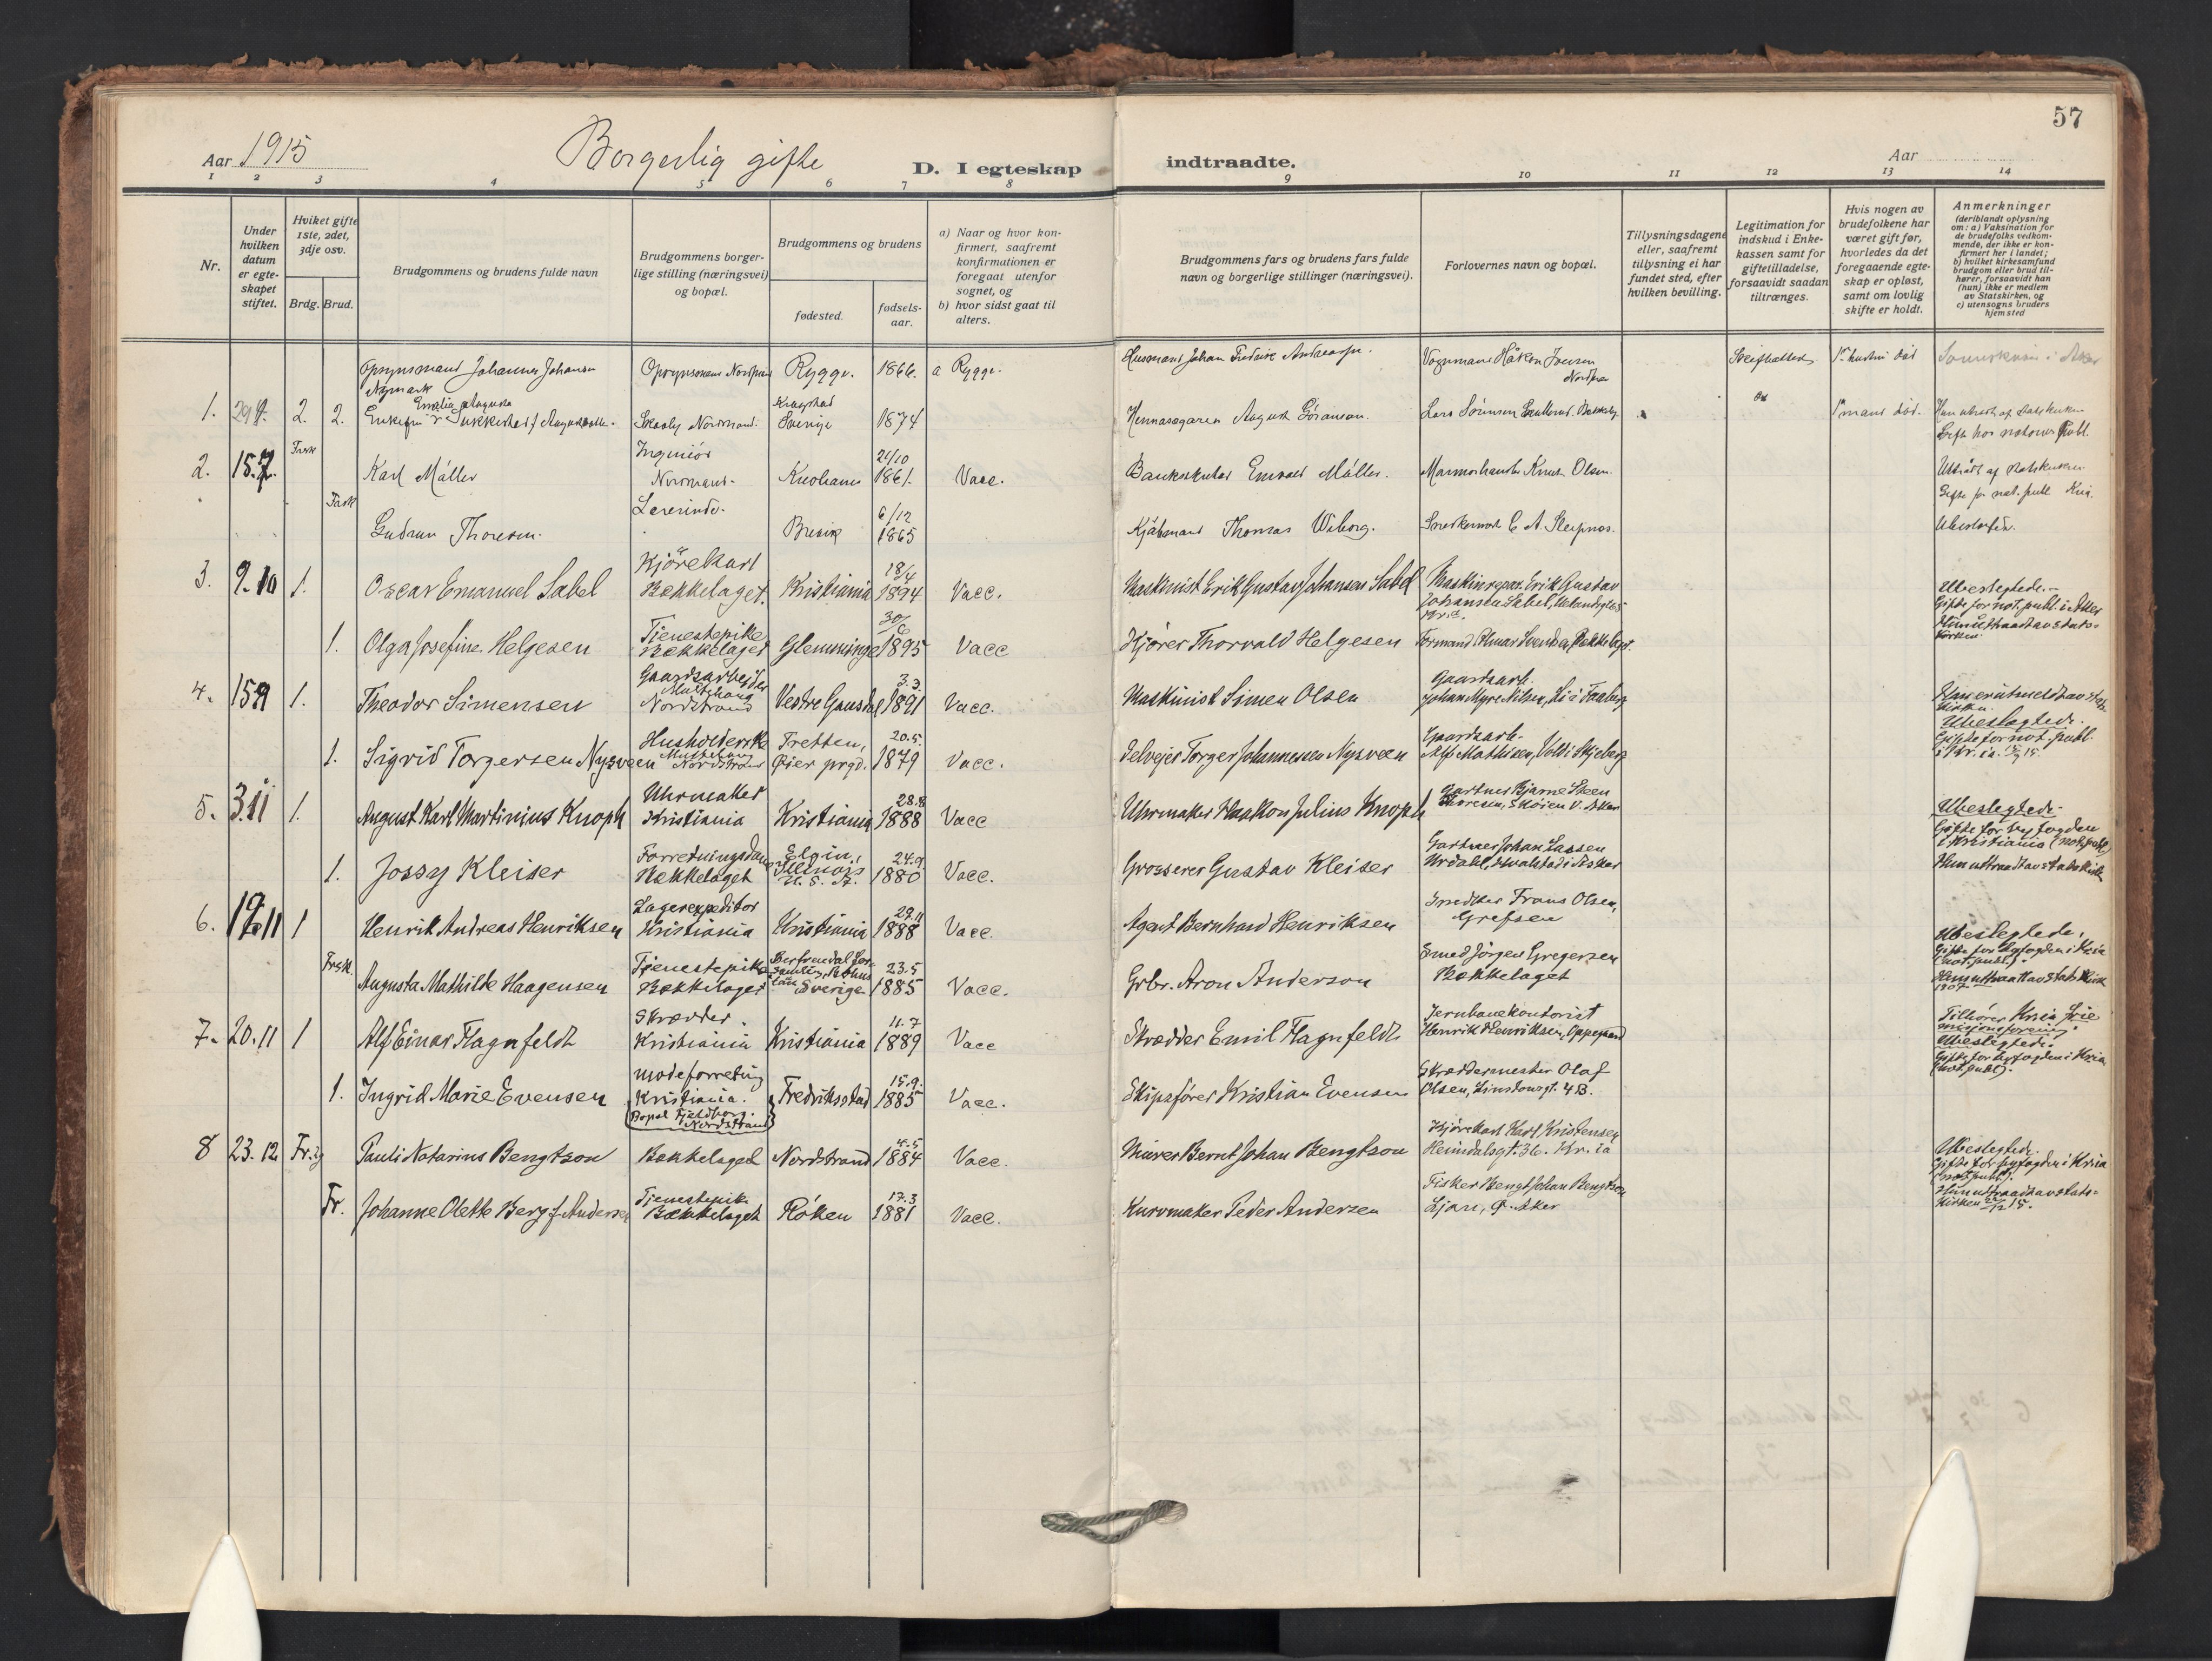 57
Aar 1915
Borgerlig gifte
D. I egteskap indtraadte.
Aar
1 2 3 4 5 6 7 8 9 10 11 12 13 14
Nr.
Under hvilken datum er egteskapet stiftet.
Hvilket gifte 1ste, 2det, 3dje osv.
Brdg. Brud.
Brudgommens og brudens fulde navn
Brudgommens borgerlige stilling (næringsvei) og bopæl.
Brudgommens og brudens
fødested.
fødselsaar.
a) Naar og hvor konfirmert, saafremt konfirmationen er foregaat utenfor sognet, og
b) hvor sidst gaat til alters.
Brudgommens fars og brudens fars fulde navn og borgerlige stillinger (næringsvei).
Forlovernes navn og bopæl.
Tillysningsdagene eller, saafremt tillysning ei har fundet sted, efter hvilken bevilling.
Legitimation for indskud i Enkekassen samt for giftetilladelse, forsaavidt saadan tiltrænges.
Hvis nogen av brudefolkene har været gift før, hvorledes da det foregaaende egteskap er opløst, samt om lovlig skifte er holdt.
Anmerkninger
(deriblandt oplysning om: a) Vaksination for de brudefolks vedkommende, der ikke er konfirmert her i landet;
b) hvilket kirkesamfund brudgom eller brud tilhører, forsaavidt han (hun) ikke er medlem av Statskirken, og
c) utensogns bruders hjemsted
Opsynsmand Johannes Johansen Nymark Opsynsmand Nordstrand Rygge. 1866. a Rygge. Husmand Johan Fredrik Andreassen. Vognmand Håkon Jensen Nordstr. 1ste hustru død
1. 29.4. 2. 2. Emelia Augusta Sverige 1874 August Göranson. Lars Sörensen 1ste mand død.
2. 15.7. Karl Müller Ingeniör Nordstrand. 21/10 1861. Vacc. Müller. Knut Olsen.
Gudrun Thoresen. Lærerinde. Brevik 6/12 1865 Kjöbmand Thomas Wiborg. Ubeslegtede.
3. 9.10 1. Oscar Emanuel Sabel Kjørekarl Bækkelaget. Kristiania 18/4 1894 Vacc. Maskinist Erik Gustav Johansen Sabel Maskinrepar. Erik Gustav Johansen Sabel, Kr.a. Ubeslegtede.- Gifte for not. publ. i Aker
1. Olga Josefine Helgesen Tjenestepike Bækkelaget Glemminge 1895 Vacc Kjører Thorvald Helgesen Formand Bækkelaget. Hun utraadt av statskirken.
4. 15.9 1. Theodor Simensen Gaardsarbeider Nordstrand Vestre Gausdal 3.3. 1891 Vacc. Maskinist Simen Olsen Gaardsarb. Johan Myre Nilsen, Faaberg Hun er utmeldt av statskirken.
1. Sigrid Torgersen Nysveen Husholderske Nordstrand Tretten, Øier prgd. 20.5. 1879 Vacc. Selveier Torger Johannessen Nysveen Gaardsarb. Alf Mathisen, Ubeslegtede. Gifte for not. publ. i Kr.ia
5. 3.11 1. August Karl Martinius Knoph Uhrmaker Kristiania Kristiania 28.8 1888 Vacc Uhrmaker Haakon Julius Knoph Gartner Bjarne Steen Thoresen, Skøien V. Aker Ubeslegtede-
1. Jossy Kleiser Forretningsdame Bækkelaget Elgin, Illinois U. S. A. 24.9. 1880 Vacc. Grosserer Gustav Kleiser Gartner Johan Larsen Urdahl, Hvalstad i Asker Gifte for byfogden i Kristiania (not. publ.) Hun utraadt av statskirken
6. 11 1 Henrik Andreas Henriksen Lagerexpeditor Kristiania Kristiania 29.11 1888 Vacc. Agent Bernhard Henriksen Snedker Frans Olsen, Grefsen Ubeslegtede.
Augusta Mathilde Haagensen Tjenestepike Bækkelaget Sverige 23.5 1885 Vacc. Grbr. Aron Anderson Smed Jörgen Gregersen Bækkelaget Gifte for byfogden i Kria (not. publ.). Hun utraadt av Statskirken 1907
7. 20.11 1 Alf Einar Flagnfeldt Skrædder. Kristiania Kristiania 11.7 1889 Vacc Skrædder Emil Flagnfeldt Jernbanekontorist Henrik Henriksen, Oppegaard Tilhører Kria frie misjonsforening. Ubeslegtede. Gifte for byfogden i Kria (not. publ).
1. Ingrid Marie Evensen Modeforretning Kristiania. (Bopæl Nordstrand) Fredriksstad 15.9. 1885 Vacc. Skipsfører Kristian Evensen Skræddermester Olaf Olsen, 4B.
8 23.12 Fr. Pauli Notarius Bengtson Bækkelaget Nordstrand 4.5 1884 Vacc. Murer Bernt Johan Bengtson Kjørekarl Karl Kristensen Heimdalsgt. 36. Kr.ia Ubeslegtede. Gifte for byfogden i Kria (not. publ.).
Fr. Johanne Olette Berg f. Andersen Tjenestepik Bækkelaget Røken 17.3 1881 Vacc. Kurvmaker Peder Andersen Fisker Bengt Johan Bengtson Ljan, Ø. Aker Hun utraadt av statskirken 15.